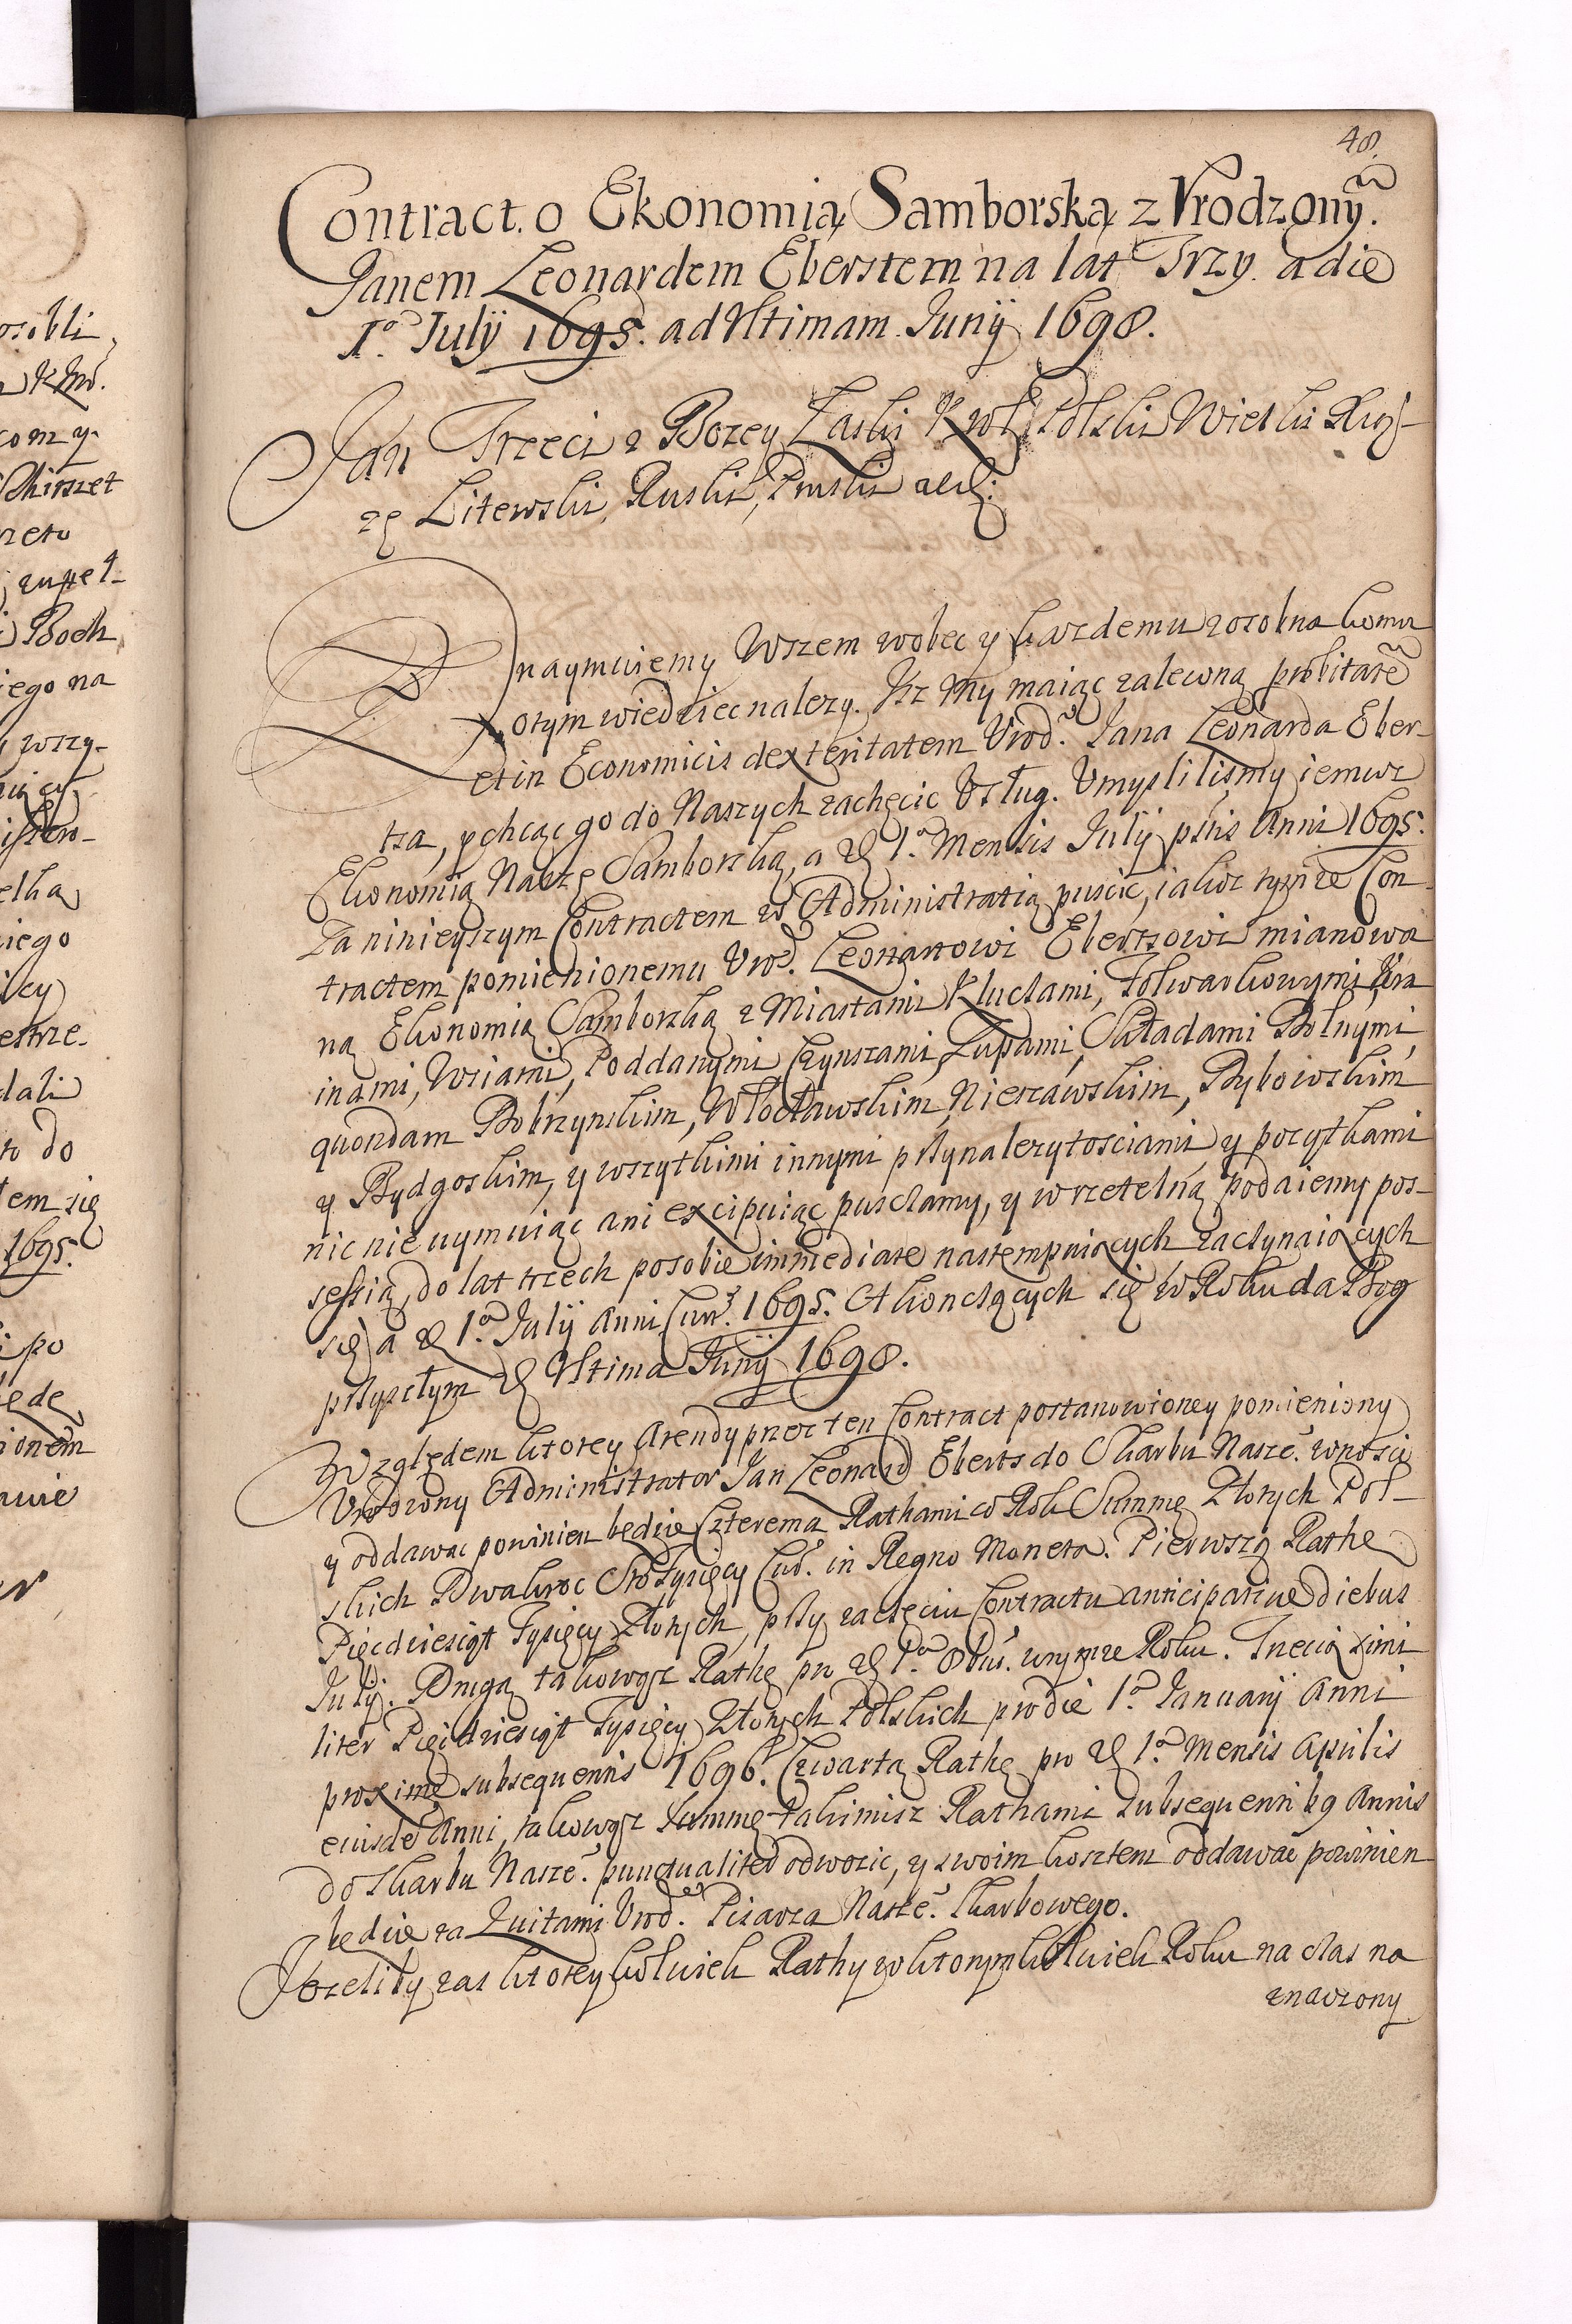 48.
Contract o Ekonomią Samborską z Vrodzonỹ.
Janem Leonardem Eberstem na lat Trzy. a die
1º July 1695. ad Vltimam Juny 1698.
Jan Trzeci z Bozey Łaski Krol Polski Wielki Xiąż-
zę Litewski, Ruski, Pruski etc:
Znaymuiemy Wszem wobec y kazdemu zosobna komu
o tym wiedziec nalezy. Jz My maiąc zaleconą probitatẽ
et in Economicis dexteritatem Vrod. Jana Leonarda Eber-
tsa, y chcąc go do Naszych zachęcic Vsług. Vmyslilismy iemuz
Ekonomią Naszę Samborską, a d. 1ª Mensis July pñtis Anni 1695.
Za ninieyszym Contractem w Administratią puscic, iakoz tymze Con-
tractem pomienionemu Vrod. Leonartowi Ebertsowi mianowa
ną Ekonomią Samborską z Miastami Kluczami, Folwarkowymi
inami, Wsiami, Poddanymi Czynszami, Zupami, Składami Solnymi,
quondam Bobrzynskim, Włocławskim, Nieszawskim, Dybowskim
y Bydgoskim, y wszytkimi innymi przynalezytosciami y pozytkami
nic nie uymuiąc ani excipuiąc pusczamy, y w rzetelną podaiemy pos-
sessią, do lat trzech posobie immediate nastempuiących zaczynaiących
się a d. 1ª July Anni Curr. 1695. A konczących się w Roku da Bog
przyszłym d. Vltima Juny 1698.
Względem ktorey Arendy przez ten Contract postanowioney pomieniony
Vrodzony Administrator Jan Leonard Eberts do Skarbu Nasze͂. wnosic
y oddawac powinien będzie Czterema Rathami co Rok Summę Złotych Pol-
skich Dwakroc Sto Tysięcy Cur. in Regno Moneta. Pierwszą Rathę
Pięcdziesiąt Tysięcy Złotych, przy zaczęciu Contractu anticipative diebus
July. Drugą takowąz Rathę pro d. 1ª 8bris. w tymze Roku. Trzecią simi
liter Pięcdziesiąt Tysięcy Złotych Polskich pro die 1ª January Anni
proxime subsequentis 1696. Czwartą Rathę pro d. 1ª Mensis Aprilis
eiusdẽ Anni, takowąz summę takimisz Rathami subsequentibq Annis
do Skarbu Nasze͂. punctualiter odwozic, y swoim kosztem oddawac powinien
będzie za Quitami Vrod. Pisarza Nasze͂. Skarbowego.
Jezeliby zas ktorey kolwiek Rathy w ktorym kolwiek Roku na czas na
znaczony